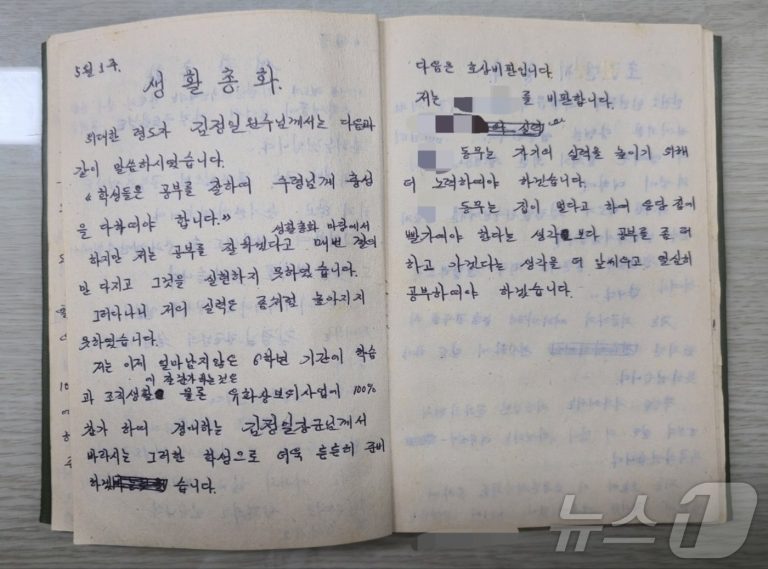 5월 1주.
생활총화
위대한 령도자 김정일원수님께서는 다음과
같이 말씀하시였습니다.
《학생들은 공부를 잘하여 수령님께 충성
을 다하여야 합니다.》
생활총화 마당에서
하지만 저는 공부를 잘하겠다고 매번 결의
만 다지고 그것을 실현하지 못하였습니다.
그러다나니 저의 실력은 좀처럼 높아지지
못하였습니다.
저는 이제 얼마남지않은 6학년 기간에 학습
에 참가하는것은
과 조직생활 물론 사업에 100%
참가 하여 경애하는 김정일장군님께서
바라시는 그러한 학생으로 더욱 튼튼히 준비
하겠습니다.
다음은 호상비판입니다.
저는 를 비판합니다.
동무는 자기의 실력을 높이기 위해
더 노력하여야 하겠습니다.
동무는 집이 멀다고 하여 응당 집에
빨가여야 한다는 생각보다 공부를 좀 더
하고 가겠다는 생각을 더 앞세우고 열심히
공부하여야 하겠습니다.
뉴스1